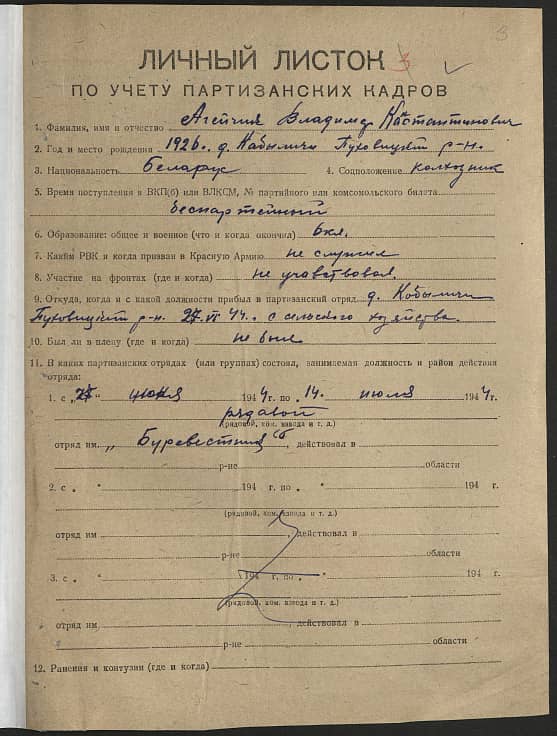 3
ЛИЧНЫЙ ЛИСТОК
ПО УЧЕТУ ПАРТИЗАНСКИХ КАДРОВ
1. Фамилия, имя и отчество Агейчик Владимир Константинович
2. Год и место рождения 1926. д. Кобыличи Пуховицкий р-н.
3. Национальность Беларус 4. Соцположение колхозник
5. Время поступления в ВКП(б) или ВЛКСМ, № партийного или комсомольского билета
беспартейный
6. Образование: общее и военное (что и когда окончил) 6кл.
7. Каким РВК и когда призван в Красную Армию не служил
8. Участие на фронтах (где и когда) не учавствовал.
9. Откуда, когда и с какой должности прибыл в партизанский отряд д. Кобыличи
Пуховицкий р-н. VI 44. с сельского хозяйства.
10. Был ли в плену (где и когда) не был
11. В каких партизанских отрядах (или группах) состоял, занимаемая должность и район действия
отряда:
1. с „ “ июня 1944г. по „14. июля 1944г.
рядовой
(рядовой, ком. взвода и т. д.)
отряд им. „Буревестник“, действовал в
р-не области
2. с „ “ 194 г. по „ “ 194 г.
(рядовой, ком. взвода и т. д.)
отряд им , действовал в
р-не области
3. с „ “ 194 г. по „ “ 194 г.
(рядовой, ком. взвода и т. д.)
отряд им. , действовал в
р-не области
12. Ранения и контузии (где и когда)